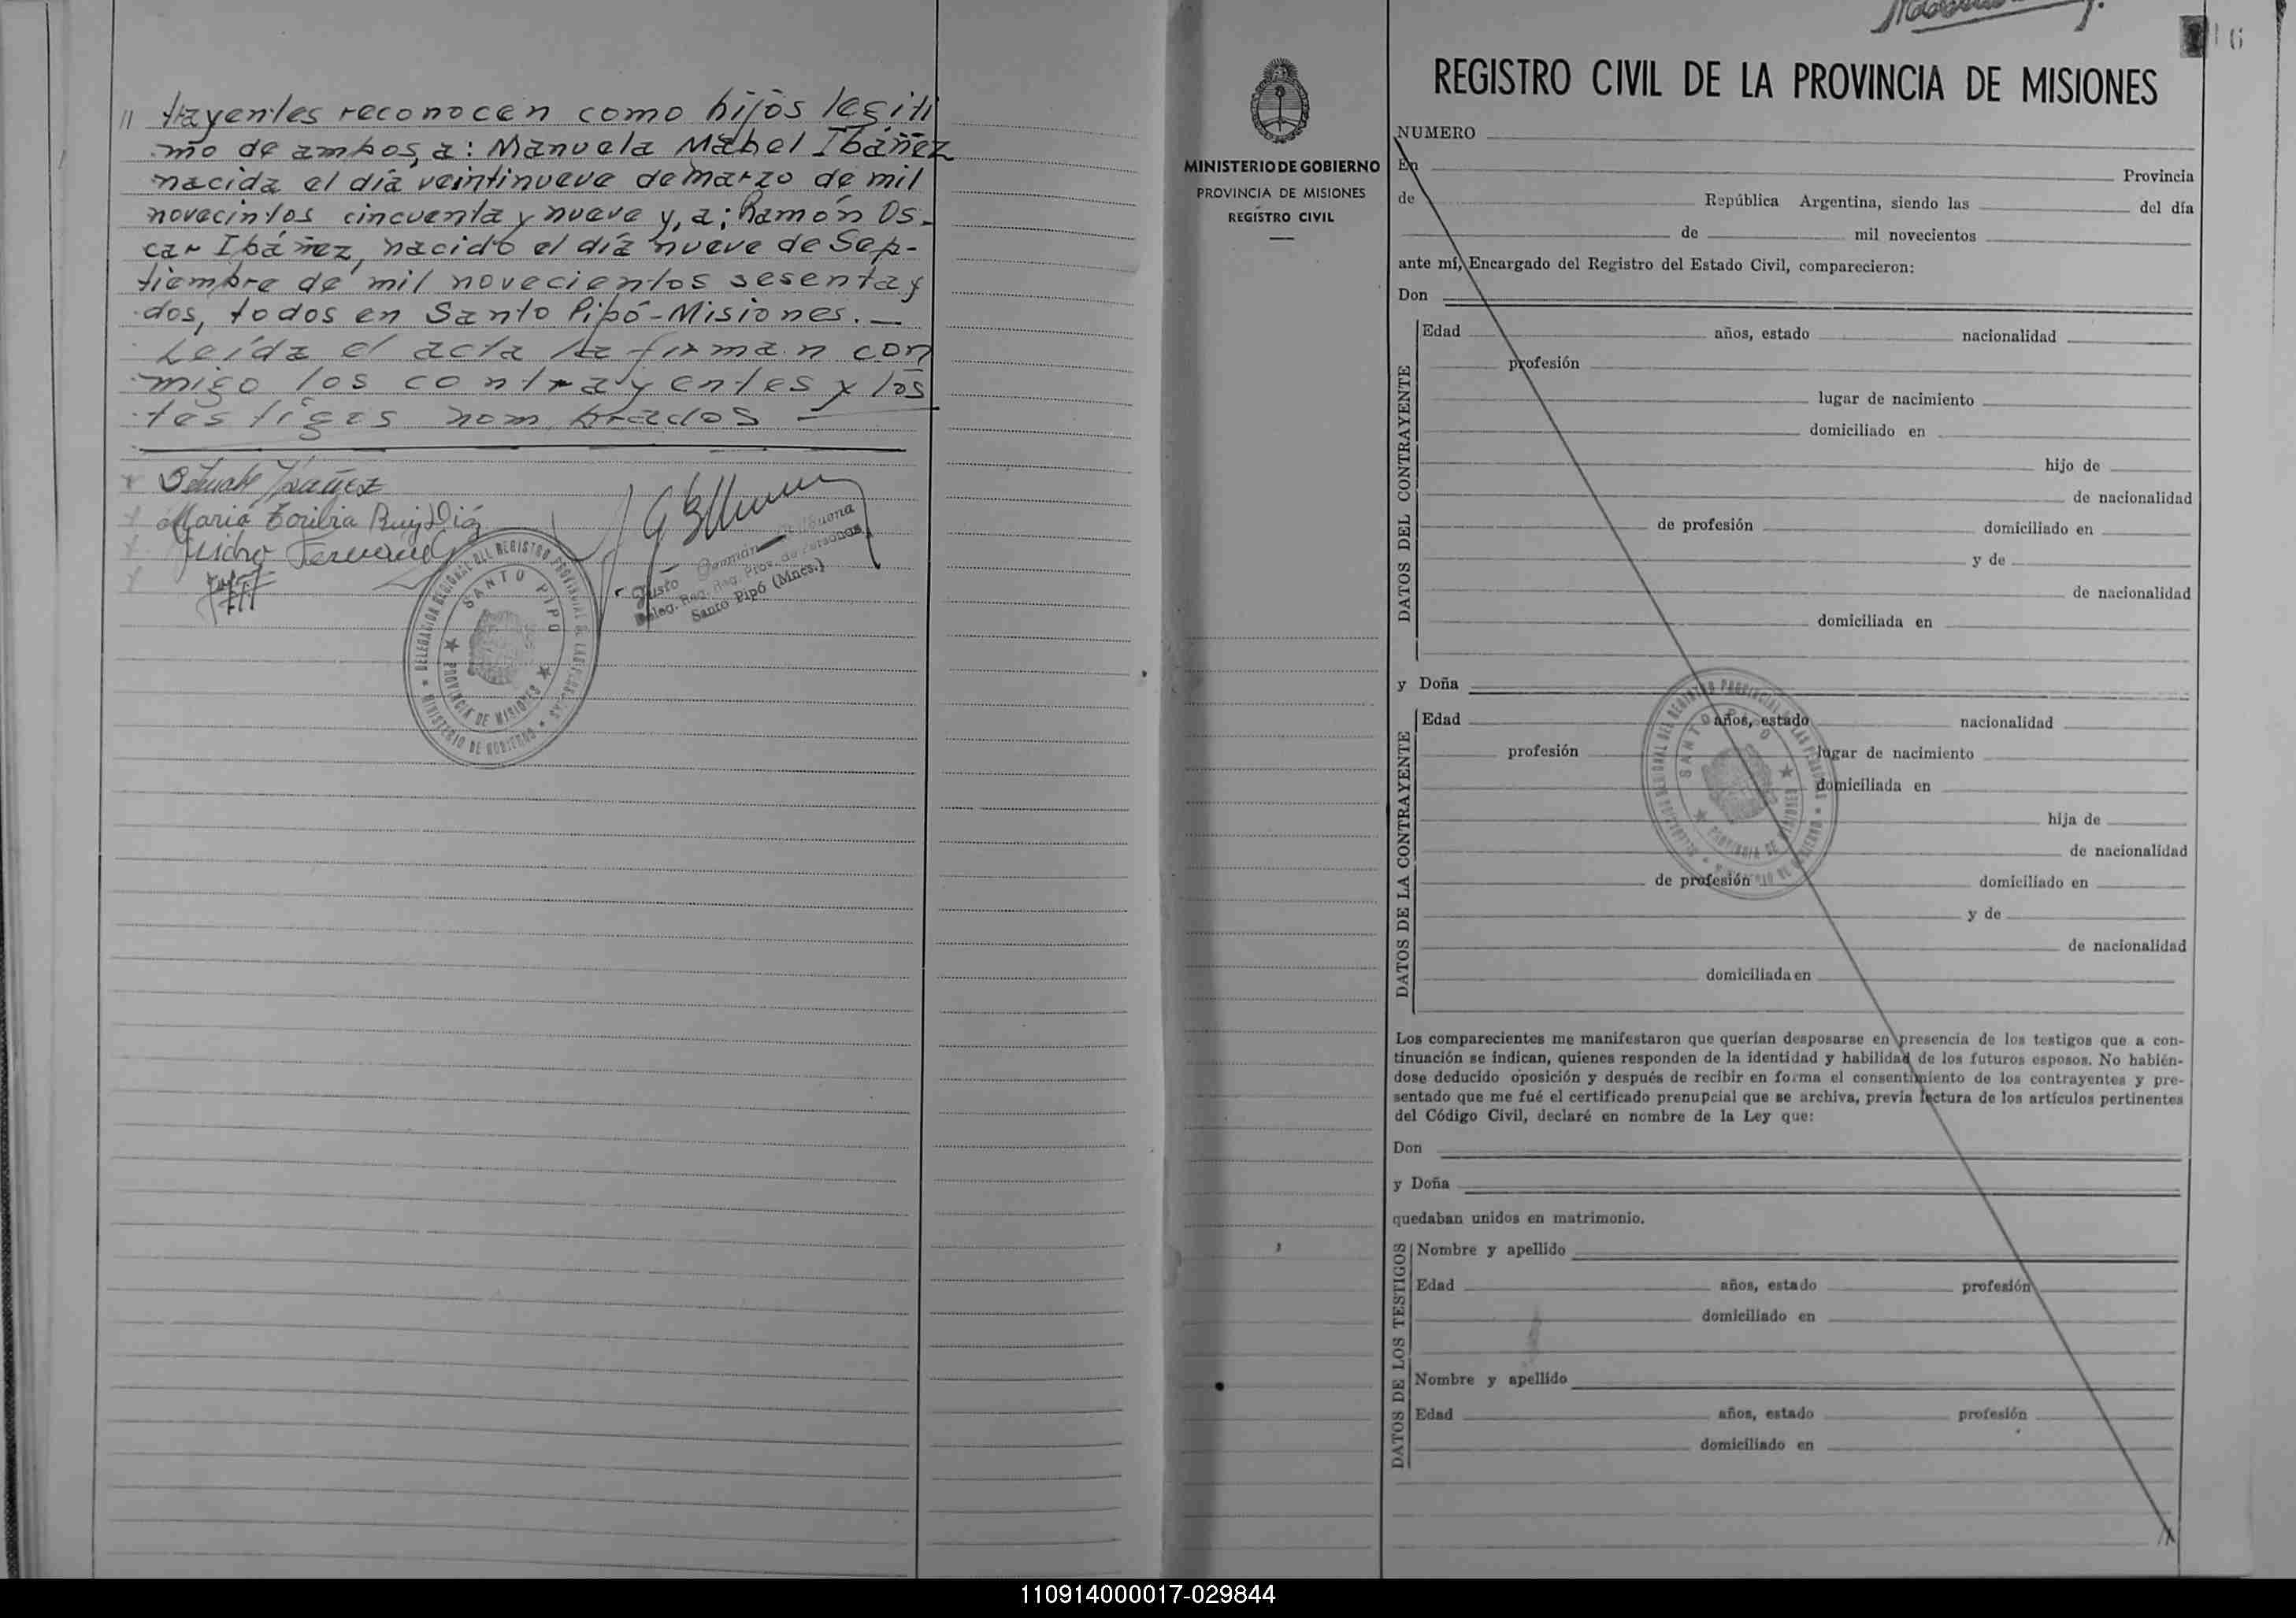 // trayentes reconocen como hijos legiti
mo de ambos, a: Manuela Mabel Ibáñez
nacida el día veintinueve de marzo de mil
novecintos cincuenta y nueve y, a; Ramón Os-
car Ibáñez, nacido el día nueve de Sep-
tiembre de mil novecientos sesenta y
dos, todos en Santo Pipó-Misiones.—
Leída el acta la firman con
migo los contrayentes y los
testigos nombrados —
Ibáñez
María Toribia Ruiz Díaz
Isidro
Justo Germán
Deleg. Reg. Prov. de Personas
Santo Pipó (Mnes.)
DELEGACION REGIONAL DEL REGISTRO PROVINCIAL DE LAS PERSONAS
SANTO PIPO
PROVINCIA DE MISIONES
MINISTERIO DE GOBIERNO
MINISTERIO DE GOBIERNO
PROVINCIA DE MISIONES
REGISTRO CIVIL
16
REGISTRO CIVIL DE LA PROVINCIA DE MISIONES
NUMERO
En Provincia
de República Argentina, siendo las del día
de mil novecientos
ante mí, Encargado del Registro del Estado Civil, comparecieron:
Don
DATOS DEL CONTRAYENTE
Edad años, estado nacionalidad
profesión
lugar de nacimiento
domiciliado en
hijo de
de nacionalidad
de profesión domiciliado en
y de
de nacionalidad
domiciliada en
y Doña
DATOS DE LA CONTRAYENTE
Edad años, estado nacionalidad
profesión lugar de nacimiento
domiciliada en
hija de
de nacionalidad
de profesión domiciliado en
y de
de nacionalidad
domiciliada en
DELEGACION REGIONAL DEL REGISTRO PROVINCIAL DE LAS PERSONAS
SANTO PIPO
PROVINCIA DE MISIONES
MINISTERIO DE GOBIERNO
Los comparecientes me manifestaron que querían desposarse en presencia de los testigos que a con-
tinuación se indican, quienes responden de la identidad y habilidad de los futuros esposos. No habién-
dose deducido oposición y después de recibir en forma el consentimiento de los contrayentes y pre-
sentado que me fué el certificado prenupcial que se archiva, previa lectura de los artículos pertinentes
del Código Civil, declaré en nombre de la Ley que:
Don
y Doña
quedaban unidos en matrimonio.
DATOS DE LOS TESTIGOS
Nombre y apellido
Edad años, estado profesión
domiciliado en
Nombre y apellido
Edad años, estado profesión
domiciliado en
110914000017-029844